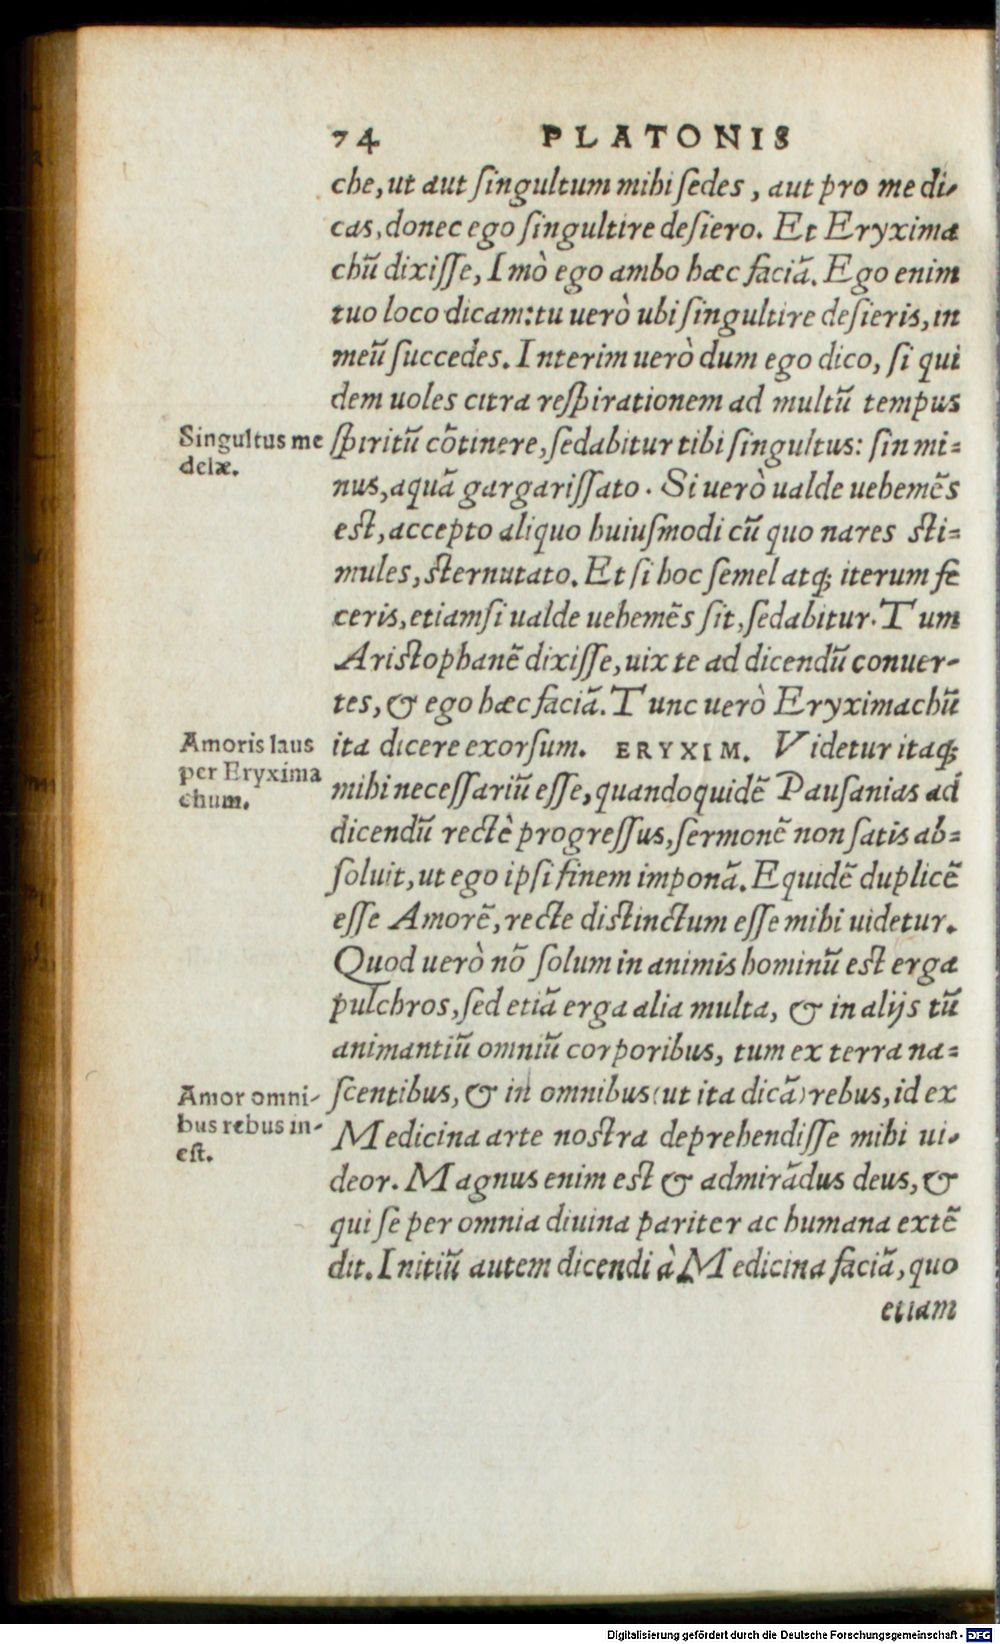 74 PLATONIS
che, ut aut ſingultum mihi ſedes, aut pro me di-
cas, donec ego ſingultire deſiero. Et Eryxima
chũ dixiſſe, Imò ego ambo hæc faciã. Ego enim
tuo loco dicam: tu uerò ubi ſingultire deſieris, in
meũ ſuccedes. Interim uerò dum ego dico, ſi qui
dem uoles citra reſpirationem ad multũ tempus
Singultus me
delæ.
ſpiritũ cõtinere, ſedabitur tibi ſingultus: ſin mi=
nus, aquã gargariſſato. Si uerò ualde uehemẽs
eſt, accepto aliquo huiuſmodi cũ quo nares ſti=
mules, ſternutato. Et ſi hoc ſemel atq; iterum fe
ceris, etiamſi ualde uehemẽs ſit, ſedabitur. Tum
Ariſtophanẽ dixiſſe, uix te ad dicendũ conuer-
tes, & ego hæc faciã. Tunc uerò Eryximachũ
Amoris laus
per Eryxima
chum.
ita dicere exorſum. ERYXIM. Videtur itaq;
mihi neceſſariũ eſſe, quandoquidẽ Pauſanias ad
dicendũ rectè progreſſus, ſermonẽ non ſatis ab=
ſoluit, ut ego ipſi finem imponã. Equidẽ duplicẽ
eſſe Amorẽ, recte diſtinctum eſſe mihi uidetur.
Quod uerò nõ ſolum in animis hominũ eſt erga
pulchros, ſed etiã erga alia multa, & in alijs tũ
animantiũ omniũ corporibus, tum ex terra na=
Amor omni-
bus rebus in-
eſt.
ſcentibus, & in omnibus (ut ita dicã) rebus, id ex
Medicina arte noſtra deprehendiſſe mihi ui-
deor. Magnus enim eſt & admirãdus deus, &
qui ſe per omnia diuina pariter ac humana extẽ
dit. Initiũ autem dicendi à Medicina faciã, quo
etiam
Digitalisierung gefördert durch die Deutsche Forschungsgemeinschaft - DFG